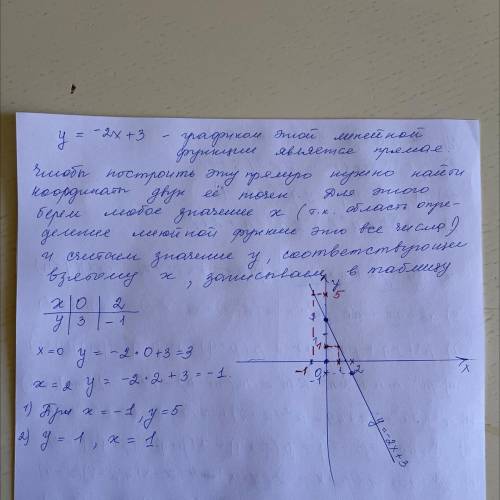 y = -2x+3 - графиком этой линейной
функции является прямая.
Чтобы построить эту прямую нужно найти
координаты двух её точек. Для этого
берем любое значение x (т.к. область опре-
деления линейной функции это все числа)
и считаем значение y, соответствующее
взятому x, записываем в таблицу
x 0 2
y 3 -1
x=0 y = -2·0+3=3
x=2 y = -2·2+3=-1.
1) При x = -1, y=5
2) y = 1, x = 1
y
5
1
-1
0
1
2
x
-1
y=-2x+3